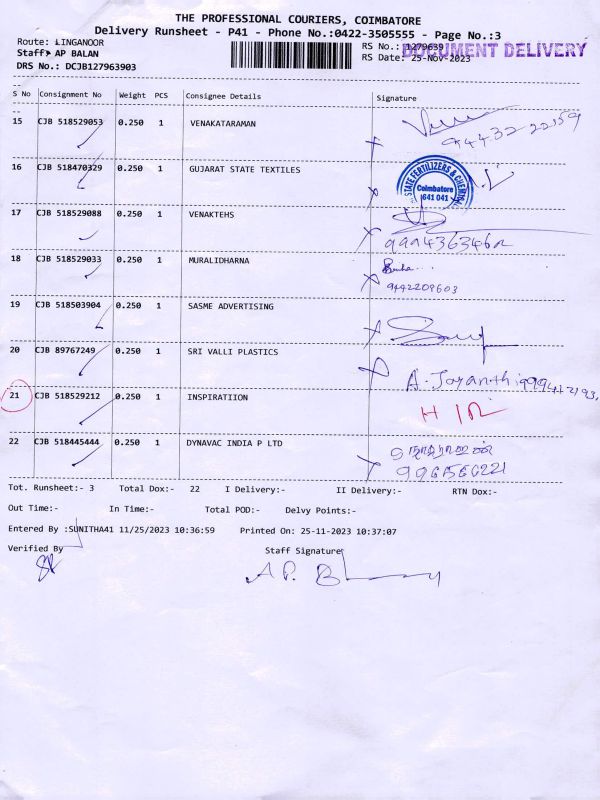 THE PROFESSIONAL COURIERS, COIMBATORE
Delivery Runsheet - P41 - Phone No.:0422-3505555 - Page No.:3
Route: LINGANOOR
RS No.: 1279639
DOCUMENT DELIVERY
Staff: AP BALAN
RS Date: 25-Nov-2023
DRS No.: DCJB127963903
S No Consignment No Weight PCS Consignee Details Signature
15 CJB 518529053 0.250 1 VENAKATARAMAN
94432-22159
16 CJB 518470329 0.250 1 GUJARAT STATE TEXTILES
STATE FERTILIZERS &
Coimbatore
641 041
17 CJB 518529088 0.250 1 VENAKTEHS
18 CJB 518529033 0.250 1 MURALIDHARNA
9442209603
19 CJB 518503904 0.250 1 SASME ADVERTISING
20 CJB 89767249 0.250 1 SRI VALLI PLASTICS
A. Jayanthi
21 CJB 518529212 0.250 1 INSPIRATIION
22 CJB 518445444 0.250 1 DYNAVAC INDIA P LTD
Tot. Runsheet:- 3 Total Dox:- 22 I Delivery:- II Delivery:- RTN Dox:-
Out Time:- In Time:- Total POD:- Delvy Points:-
Entered By :SUNITHA41 11/25/2023 10:36:59 Printed On: 25-11-2023 10:37:07
Verified By Staff Signature